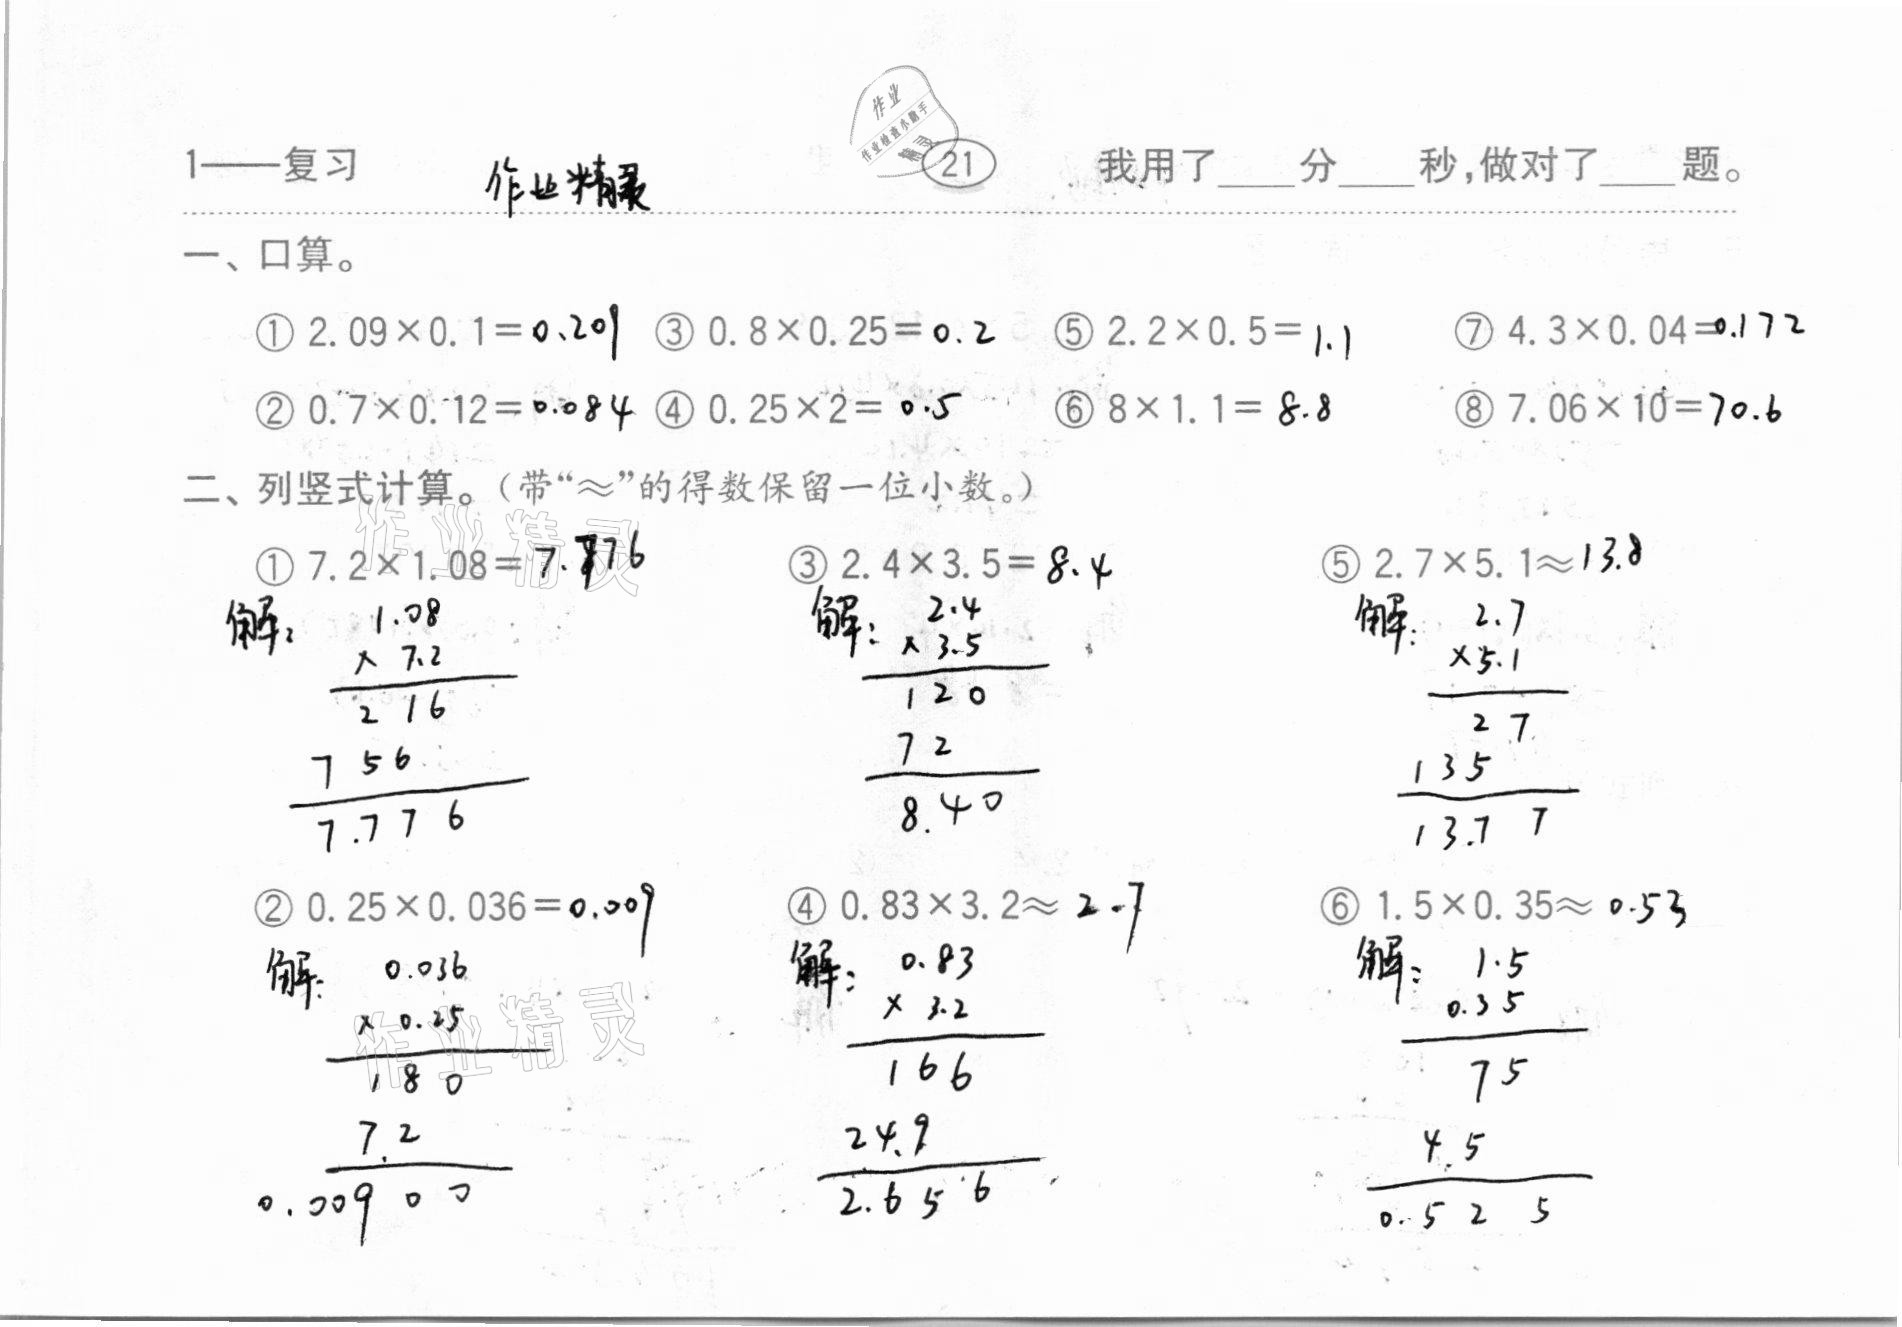 作业
作业检查小助手
精灵
1——复习 作业精灵 21 我用了____分____秒,做对了____题。
一、口算。
① 2.09×0.1=0.209 ③ 0.8×0.25=0.2 ⑤ 2.2×0.5=1.1 ⑦ 4.3×0.04=0.172
② 0.7×0.12=0.084 ④ 0.25×2=0.5 ⑥ 8×1.1=8.8 ⑧ 7.06×10=70.6
二、列竖式计算。(带“≈”的得数保留一位小数。)
作业精灵
① 7.2×1.08=7.776 ③ 2.4×3.5=8.4 ⑤ 2.7×5.1≈13.8
解: 1.08 解: 2.4 解: 2.7
× 7.2 × 3.5 ×5.1
216 120 27
756 72 135
7.776 8.40 13.77
② 0.25×0.036=0.009 ④ 0.83×3.2≈2.7 ⑥ 1.5×0.35≈0.53
解: 0.036 解: 0.83 解: 1.5
× 0.25 × 3.2 0.35
作业精灵
180 166 75
7.2 24.9 4.5
0.00900 2.656 0.525